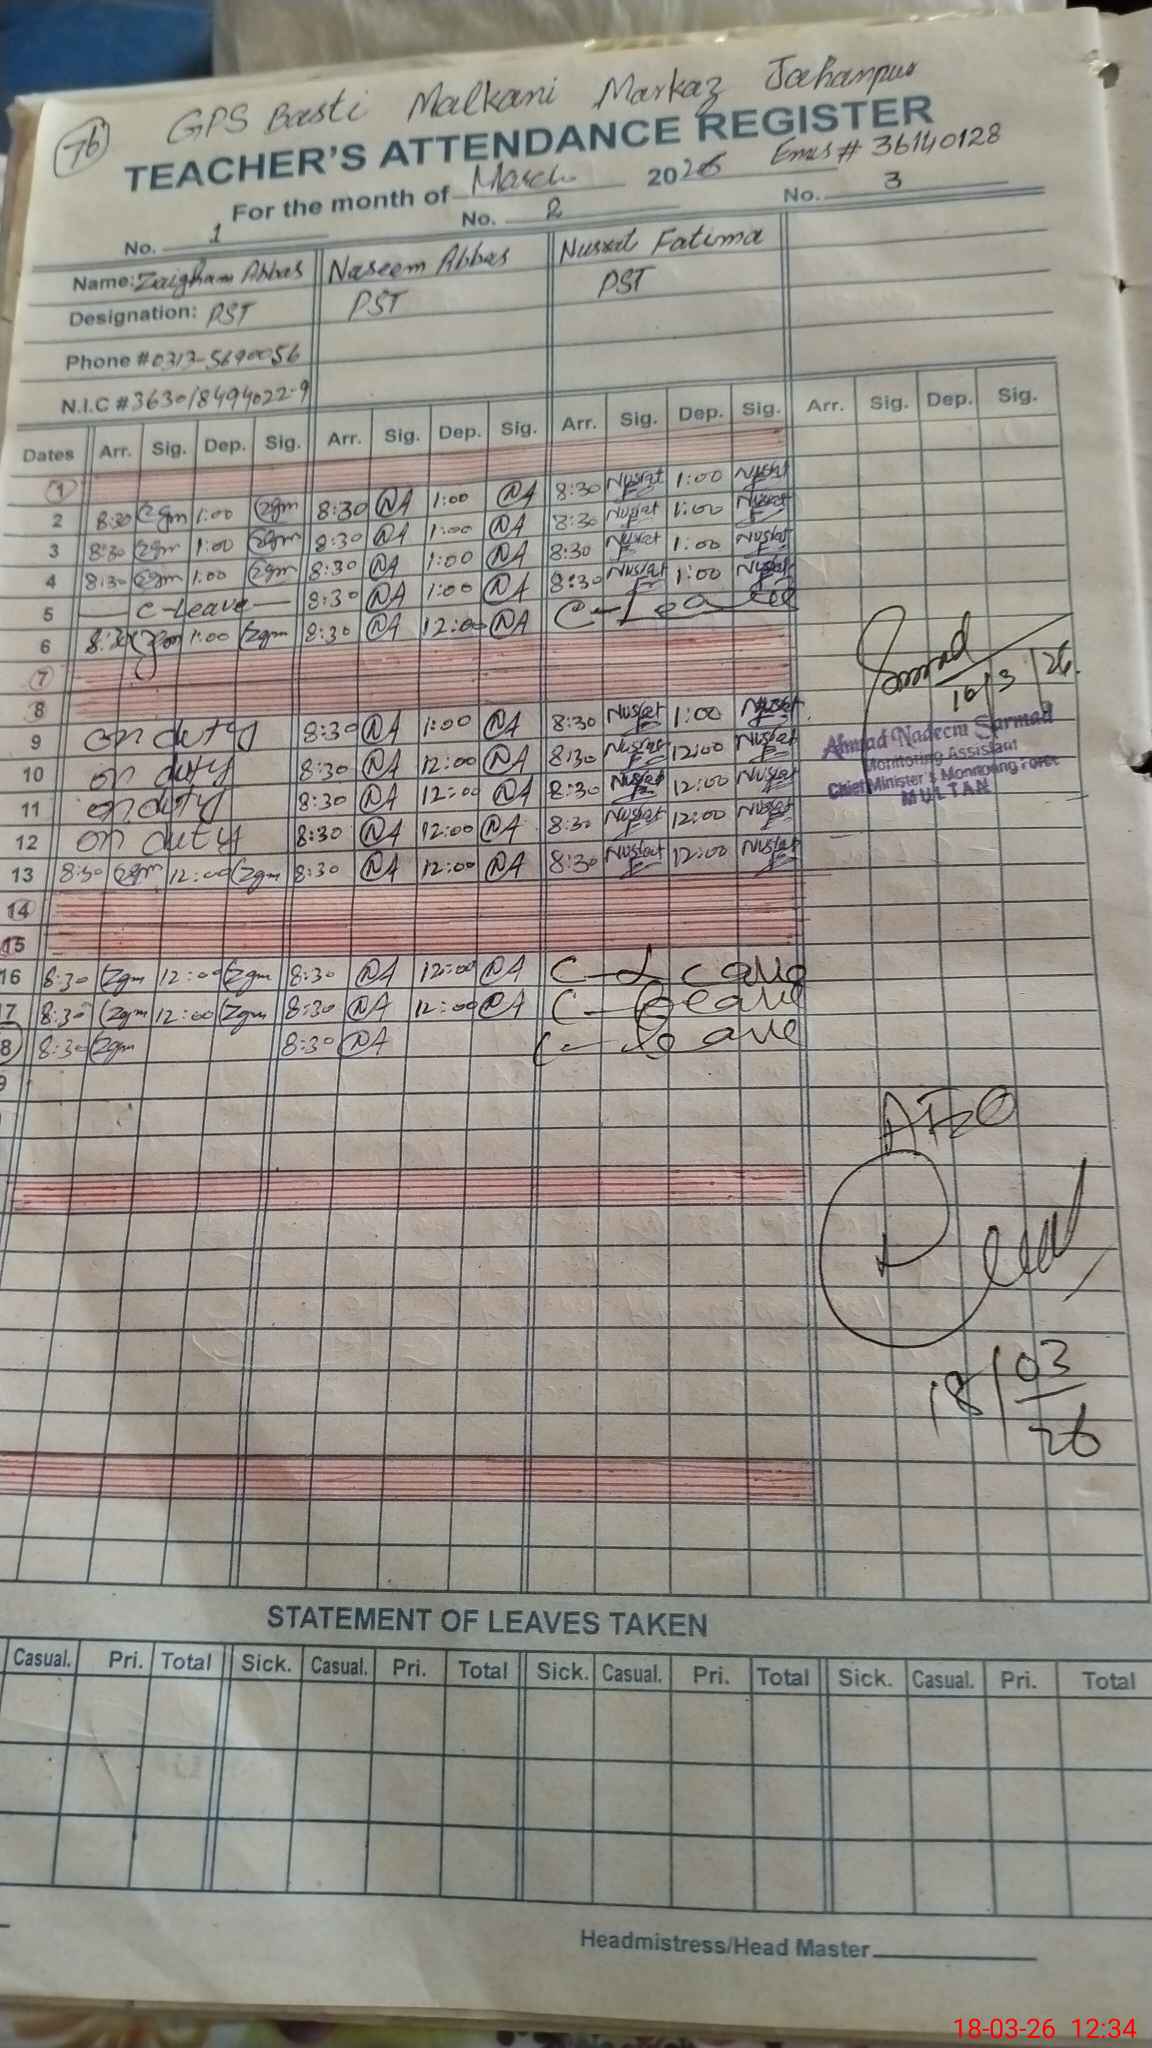 76
GPS Basti Malkani Markaz Jahanpur
TEACHER'S ATTENDANCE REGISTER
Emis # 36140128
For the month of March 2026
No. 1 No. 2 No. 3
Name: Zaigham Abbas Naseem Abbas Nusrat Fatima
Designation: PST PST PST
Phone # 0313-5690056
N.I.C # 363018494022-9
Dates Arr. Sig. Dep. Sig. Arr. Sig. Dep. Sig. Arr. Sig. Dep. Sig. Arr. Sig. Dep. Sig.
1
2 8:30 Zgm 1:00 Zgm 8:30 NA 1:00 NA 8:30 Nusrat F 1:00 Nusrat F
3 8:30 Zgm 1:00 Zgm 8:30 NA 1:00 NA 8:30 Nusrat F 1:00 Nusrat F
4 8:30 Zgm 1:00 Zgm 8:30 NA 1:00 NA 8:30 Nusrat F 1:00 Nusrat F
5 C-Leave 8:30 NA 1:00 NA 8:30 Nusrat F 1:00 Nusrat F
6 8:30 Zgm 1:00 Zgm 8:30 NA 12:00 NA C-Leave
7
8
9 on duty 8:30 NA 1:00 NA 8:30 Nusrat F 1:00 Nusrat F
10 on duty 8:30 NA 12:00 NA 8:30 Nusrat F 12:00 Nusrat F
11 on duty 8:30 NA 12:00 NA 8:30 Nusrat F 12:00 Nusrat F
12 on duty 8:30 NA 12:00 NA 8:30 Nusrat F 12:00 Nusrat F
13 8:30 Zgm 12:00 Zgm 8:30 NA 12:00 NA 8:30 Nusrat F 12:00 Nusrat F
14
15
16 8:30 Zgm 12:00 Zgm 8:30 NA 12:00 NA C-Leave
17 8:30 Zgm 12:00 Zgm 8:30 NA 12:00 NA C-Leave
8 8:30 Zgm 8:30 NA C-leave
9
Sarmad
16/3/26.
Ahmad Nadeem Sarmad
Monitoring Assistant
Chief Minister's Monitoring Force
MULTAN
AEO
18/03/26
STATEMENT OF LEAVES TAKEN
Casual. Pri. Total Sick. Casual. Pri. Total Sick. Casual. Pri. Total Sick. Casual. Pri. Total
Headmistress/Head Master
18-03-26 12:34